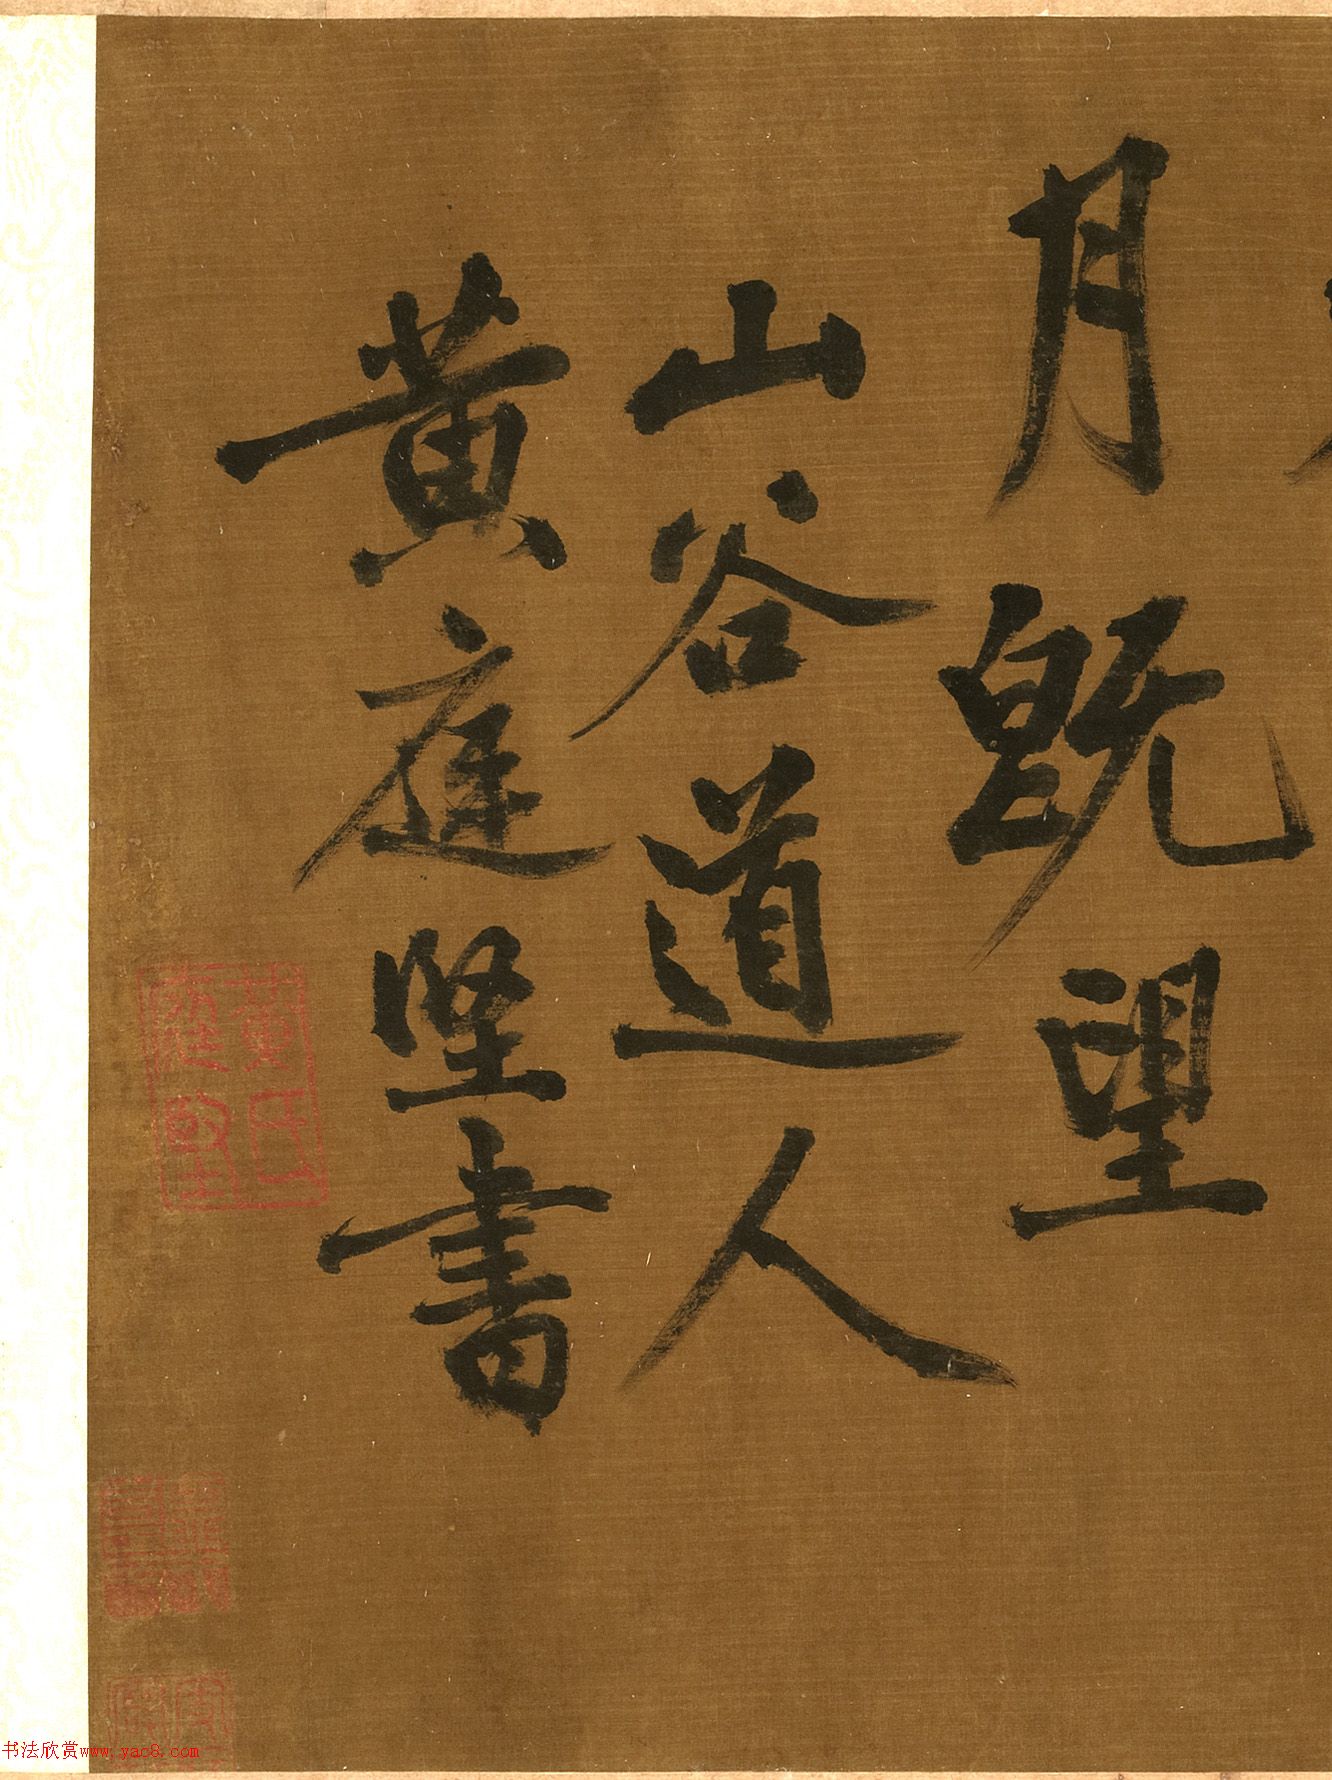 月既望
山谷道人
黄庭堅書
书法欣赏www.yac8.com